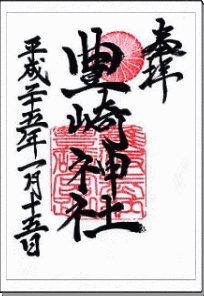 奉拝
豊崎神社
平成二十五年一月十五日